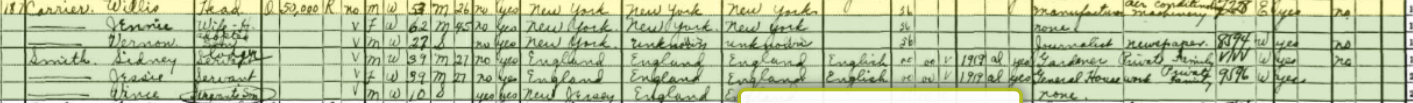 187 Carrier. Willis Head O 50,000 R no M W 53 M 26 no yes New York New York New York 56 manufacture air conditioning machinery 7278 E yes no
—— Jennie Wife-H V F W 62 M 45 no yes New York New York. New York 56 none.
—— Vernon. adopted Son V M W 27 S no yes New York. unknown unknown 56 Journalist newspaper. 8594 W yes no
Smith. Sidney V M W 39 M 21 no yes England England England English 00 V 1919 al yes Gardner Private Family W yes no
—— Jessie Servant V F W 39 M 21 no yes England England England English 00 V 1919 al yes General Housework Private Family 9596 W yes
—— Vince V M W 10 S yes yes New Jersey England none.